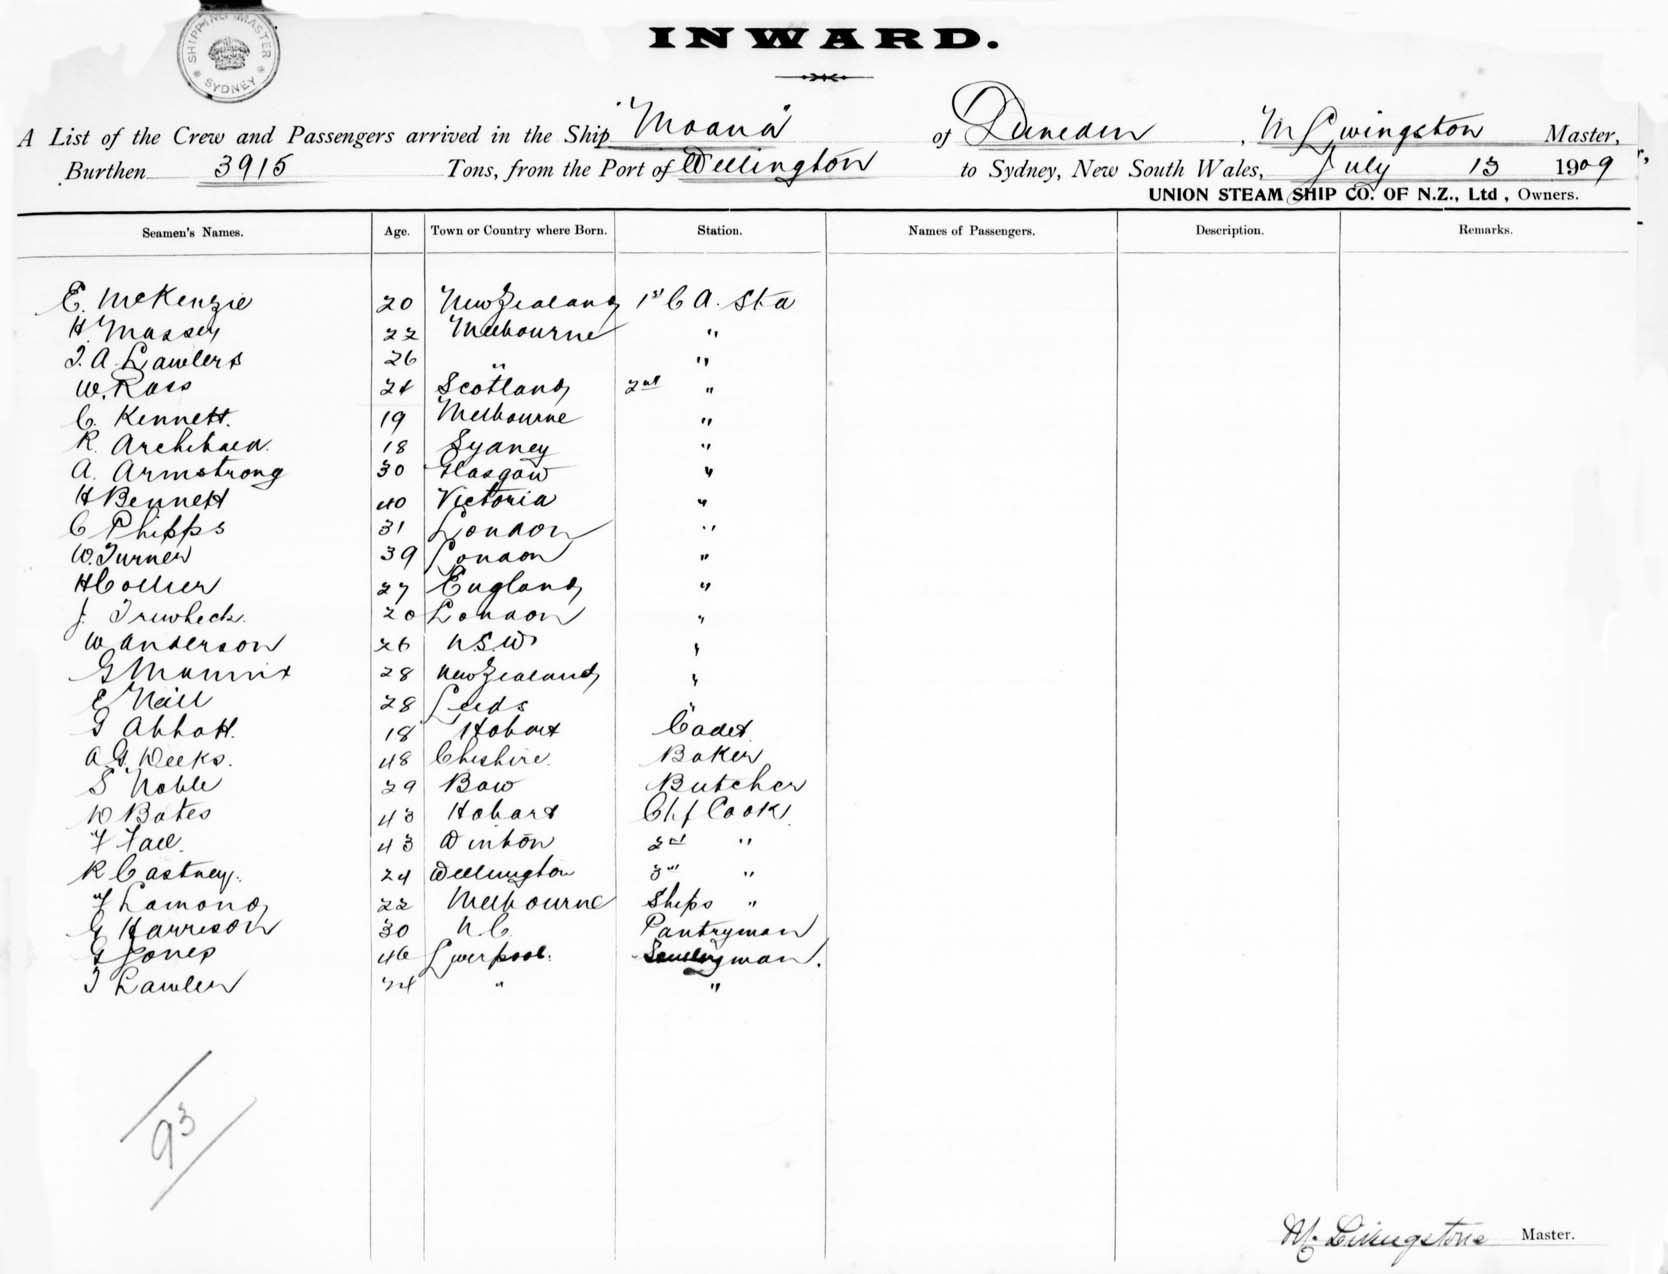 SHIPPING MASTER SYDNEY
INWARD.
A List of the Crew and Passengers arrived in the Ship "Moana" of Dunedin, M Livingston Master,
Burthen 3915 Tons, from the Port of Wellington to Sydney, New South Wales, July 13 1909
UNION STEAM SHIP CO. OF N.Z., Ltd, Owners.
Seamen's Names. Age. Town or Country where Born. Station. Names of Passengers. Description. Remarks.
E. McKenzie 20 New Zealand 1st C A. Sta
H. Massey 22 Melbourne "
J. A. Lawlers 26 " "
W. Ross 24 Scotland 2nd "
C. Kennett. 19 Melbourne "
R. Archibald. 18 Sydney "
A. Armstrong 30 Glasgow "
H Bennett 40 Victoria "
C Phipps 31 London "
W. Turner 39 London "
H Collier 27 England "
J. Trewheck. 20 London "
W Anderson 26 N.S.W. "
G Mannix 28 New Zealand "
E Neill 28 Leeds "
Abbott. 18 Hobart Cadet
A G. Weeks. 48 Cheshire. Baker
S Noble 29 Bow Butcher
W Bates 43 Hobart Chf Cook
F Fall. 43 Winton 2nd "
R Castney. 24 Wellington 3rd "
F Lamond 22 Melbourne Ships "
G Harrison 30 N. C. Pantryman
G Jones 46 Liverpool. man.
Lawler 24 " "
93
M. Livingstone Master.